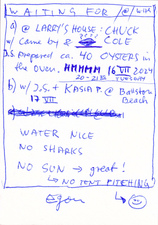 WAITING FOR @/WITH
a) @ LARRY'S HOUSE: CHUCK
w/ Came by & COLE
J.S. PREPARED ca. 40 OYSTERS in
the oven. HMMMM 16 VII 2024
20-21 TUESDAY
b) w/ J.S. + KASIA P. @
17 VII BEACH
WATER NICE
NO SHARKS
NO SUN → great!
↳ NO TENT PITCHING
Again